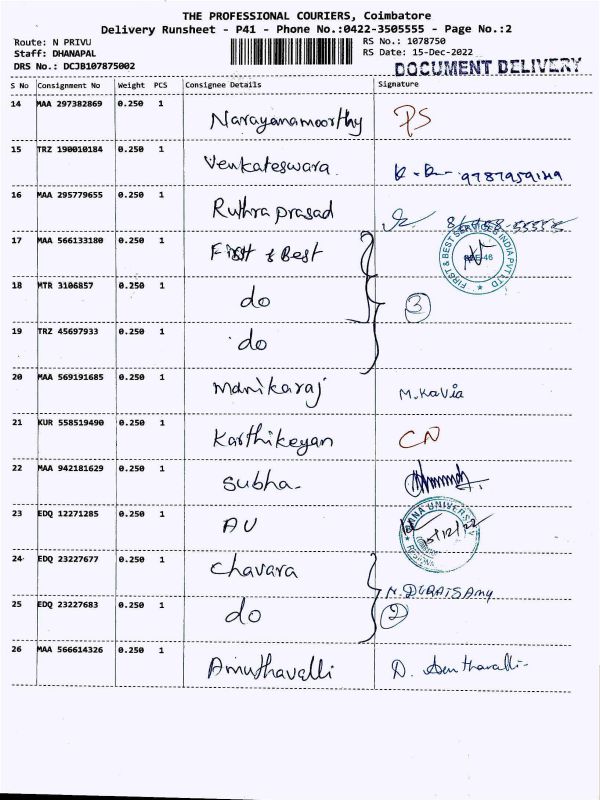 THE PROFESSIONAL COURIERS, Coimbatore
Delivery Runsheet - P41 - Phone No.:0422-3505555 - Page No.:2
Route: N PRIVU RS No.: 1078750
Staff: DHANAPAL RS Date: 15-Dec-2022
DRS No.: DCJB107875002 DOCUMENT DELIVERY
S No Consignment No Weight PCS Consignee Details Signature
14 MAA 297382869 0.250 1 Narayanamoorthy PS
15 TRZ 190010184 0.250 1 Venkateswara 9787959129
16 MAA 295779655 0.250 1 Ruthra prasad
17 MAA 566133180 0.250 1 First & Best FIRST & BEST SERVICES INDIA PVT LTD
18 MTR 3106857 0.250 1 do 3
19 TRZ 45697933 0.250 1 do
20 MAA 569191685 0.250 1 Manikaraj M.Kavia
21 KUR 558519490 0.250 1 Karthikeyan CN
22 MAA 942181629 0.250 1 Subha
23 EDQ 12271285 0.250 1 AU UNIVERSITY 15/12/22
24 EDQ 23227677 0.250 1 Chavara N. DURAISAmy
25 EDQ 23227683 0.250 1 do 2
26 MAA 566614326 0.250 1 Amuthavalli D. Amuthavalli